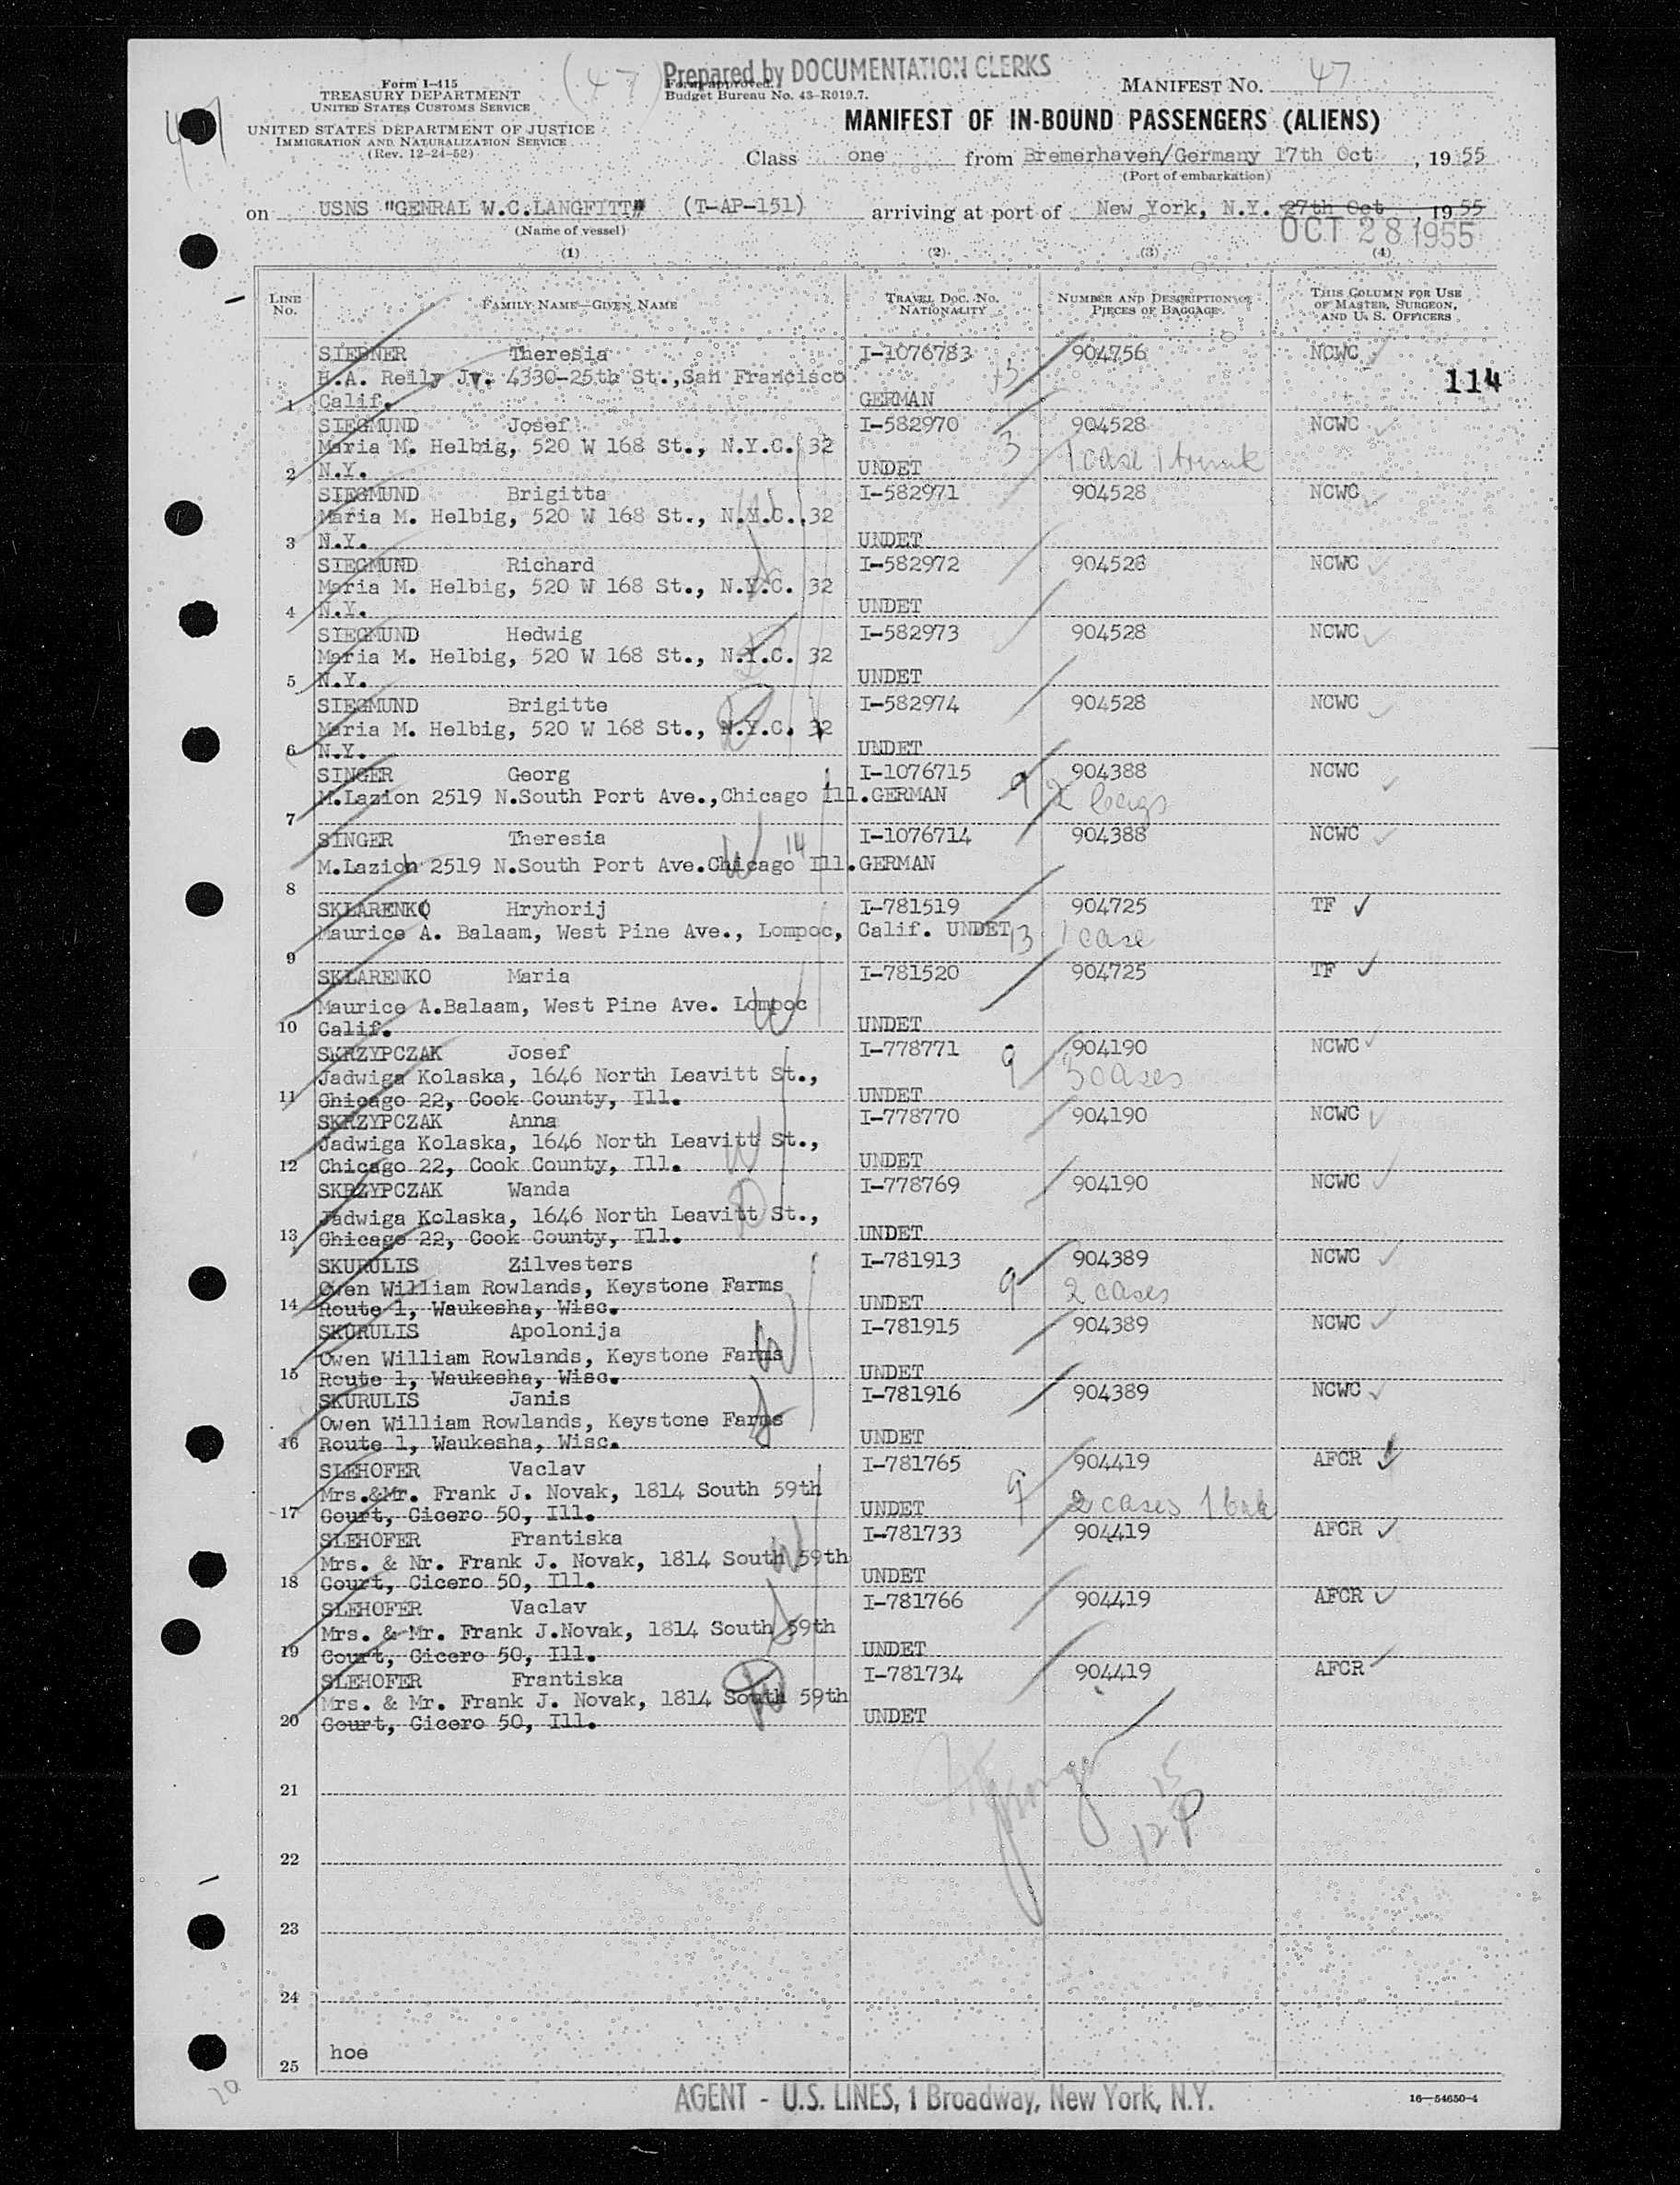 Form I-415
TREASURY DEPARTMENT
UNITED STATES CUSTOMS SERVICE
UNITED STATES DEPARTMENT OF JUSTICE
IMMIGRATION AND NATURALIZATION SERVICE
(Rev. 12-24-52)
(47)
Prepared by DOCUMENTATION CLERKS
Form approved.
Budget Bureau No. 43-R019.7.
MANIFEST NO. 47
MANIFEST OF IN-BOUND PASSENGERS (ALIENS)
Class one from Bremerhaven/Germany 17th Oct , 19 55
(Port of embarkation)
on USNS "GENRAL W.C.LANGFITT" (T-AP-151) arriving at port of New York, N.Y. 27th Oct , 19 55
(Name of vessel)
OCT 28 1955
(1) (2) (3) (4)
LINE NO. FAMILY NAME—GIVEN NAME TRAVEL DOC. NO. NATIONALITY NUMBER AND DESCRIPTION OF PIECES OF BAGGAGE THIS COLUMN FOR USE OF MASTER, SURGEON, AND U. S. OFFICERS
SIEBNER Theresia I-1076783 904756 NCWC
H.A. Reily Jr. 4330-25th St.,San Francisco 114
1 Calif. GERMAN
SIEGMUND Josef I-582970 904528 NCWC
Maria M. Helbig, 520 W 168 St., N.Y.C. 32 3 1 case 1 trunk
2 N.Y. UNDET
SIEGMUND Brigitta I-582971 904528 NCWC
Maria M. Helbig, 520 W 168 St., N.Y.C. 32
3 N.Y. UNDET
SIEGMUND Richard I-582972 904528 NCWC
Maria M. Helbig, 520 W 168 St., N.Y.C. 32
4 N.Y. UNDET
SIEGMUND Hedwig I-582973 904528 NCWC
Maria M. Helbig, 520 W 168 St., N.Y.C. 32
5 N.Y. UNDET
SIEGMUND Brigitte I-582974 904528 NCWC
Maria M. Helbig, 520 W 168 St., N.Y.C. 32
6 N.Y. UNDET
SINGER Georg I-1076715 904388 NCWC
M.Lazion 2519 N.South Port Ave.,Chicago Ill.GERMAN 9 2 bags
7
SINGER Theresia I-1076714 904388 NCWC
M.Lazich 2519 N.South Port Ave.Chicago 14 Ill.GERMAN
8
SKLARENKO Hryhorij I-781519 904725 TF
Maurice A. Balaam, West Pine Ave., Lompoc, Calif. UNDET 13 1 case
9
SKLARENKO Maria I-781520 904725 TF
Maurice A.Balaam, West Pine Ave. Lompoc
10 Calif. UNDET
SKRZYPCZAK Josef I-778771 9 904190 NCWC
Jadwiga Kolaska, 1646 North Leavitt St., 3 cases
11 Chicago 22, Cook County, Ill. UNDET
SKRZYPCZAK Anna I-778770 904190 NCWC
Jadwiga Kolaska, 1646 North Leavitt St.,
12 Chicago 22, Cook County, Ill. UNDET
SKRZYPCZAK Wanda I-778769 904190 NCWC
Jadwiga Kolaska, 1646 North Leavitt St.,
13 Chicago 22, Cook County, Ill. UNDET
SKURULIS Zilvesters I-781913 904389 NCWC
Owen William Rowlands, Keystone Farms 9 2 cases
14 Route 1, Waukesha, Wisc. UNDET
SKURULIS Apolonija I-781915 904389 NCWC
Owen William Rowlands, Keystone Farms
15 Route 1, Waukesha, Wisc. UNDET
SKURULIS Janis I-781916 904389 NCWC
Owen William Rowlands, Keystone Farms
16 Route 1, Waukesha, Wisc. UNDET
SLEHOFER Vaclav I-781765 904419 AFCR
Mrs.&Mr. Frank J. Novak, 1814 South 59th 9 2 cases 1
17 Court, Cicero 50, Ill. UNDET
SLEHOFER Frantiska I-781733 904419 AFCR
Mrs. & Nr. Frank J. Novak, 1814 South 59th
18 Court, Cicero 50, Ill. UNDET
SLEHOFER Vaclav I-781766 904419 AFCR
Mrs. & Mr. Frank J.Novak, 1814 South 59th
19 Court, Cicero 50, Ill. UNDET
SLEHOFER Frantiska I-781734 904419 AFCR
Mrs. & Mr. Frank J. Novak, 1814 South 59th
20 Court, Cicero 50, Ill. UNDET
21
22
23
24
25 hoe
20
AGENT - U.S. LINES, 1 Broadway, New York, N.Y.
16—54650-4